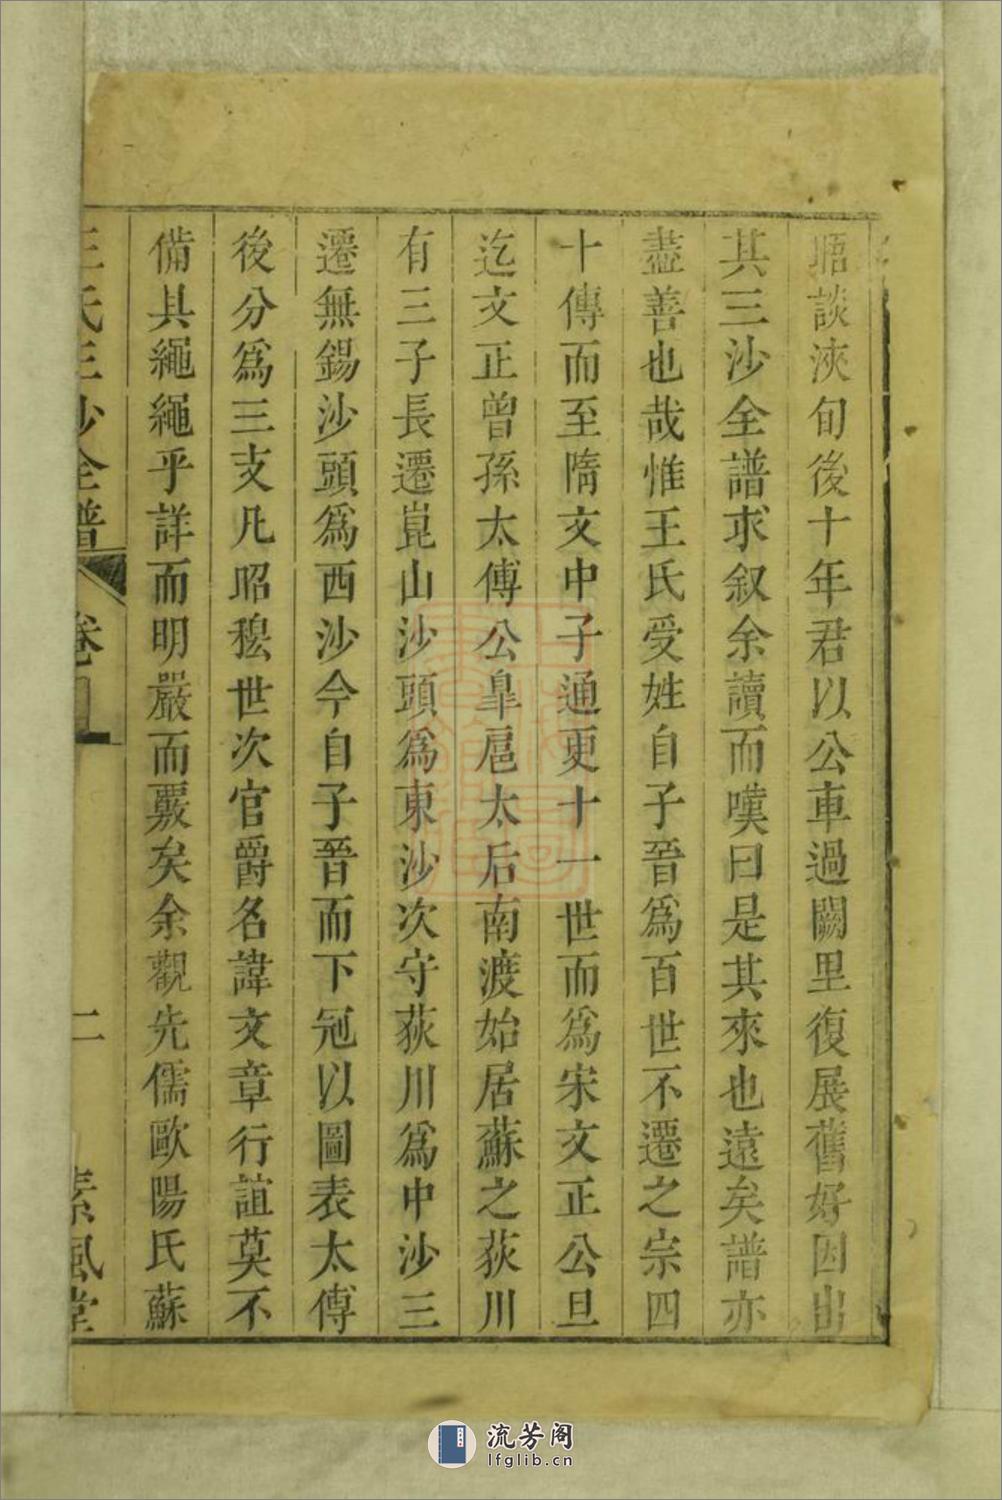 晤談浹旬後十年君以公車過闕里復展舊好因出
其三沙全譜求叙余讀而嘆曰是其來也遠矣譜亦
盡善也哉惟王氏受姓自子晉爲百世不遷之宗四
十傳而至隋文中子通更十一世而爲宋文正公旦
迄文正曾孫太傅公臯扈太后南渡始居蘇之荻川
有三子長遷崑山沙頭爲東沙次守荻川爲中沙三
遷無錫沙頭爲西沙今自子晉而下冠以圖表太傅
後分爲三支凡昭穆世次官爵名諱文章行誼莫不
備具繩繩乎詳而明嚴而覈矣余觀先儒歐陽氏蘇
王氏三沙全譜
卷
二
素風堂
流芳阁
lfglib.cn